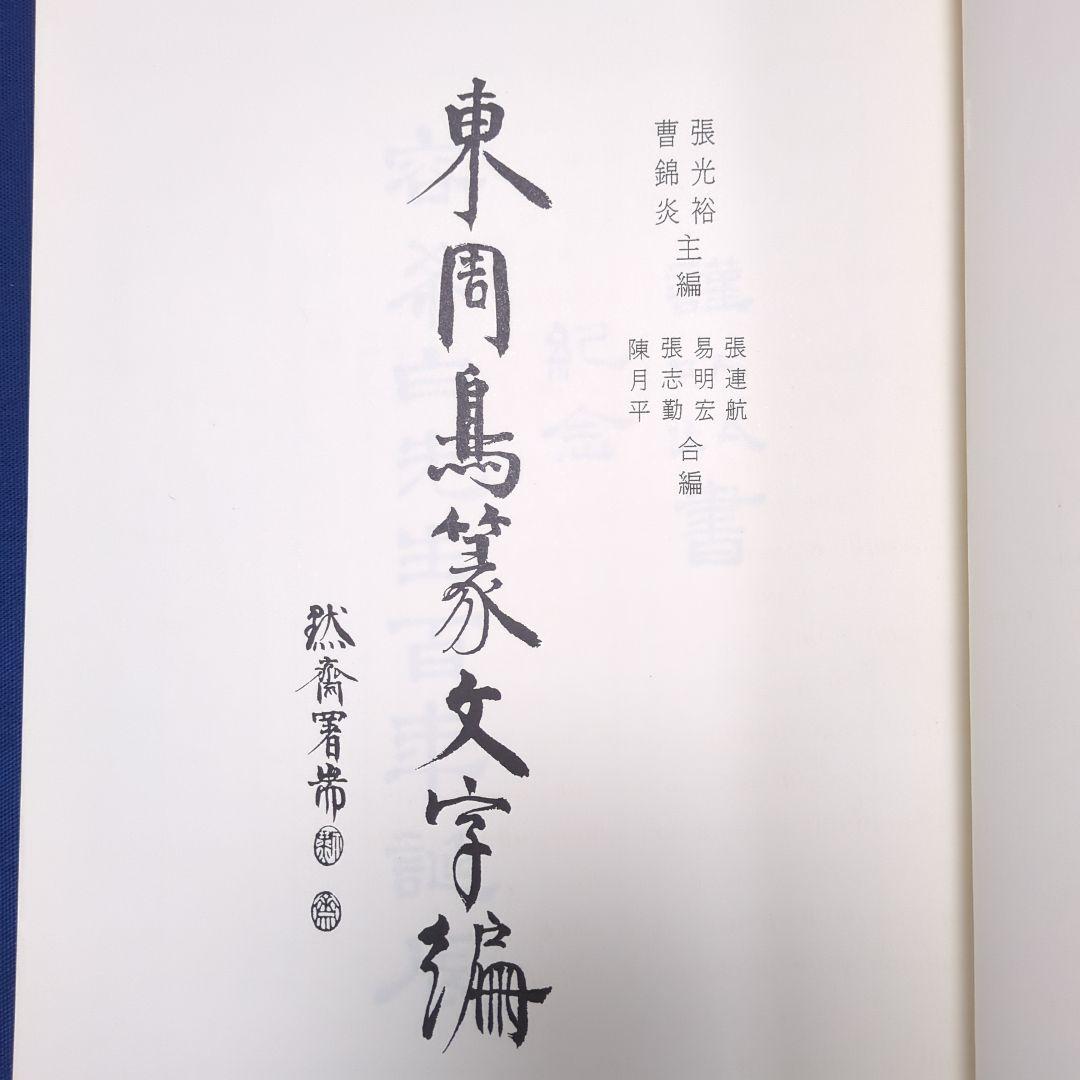 張光裕
曹錦炎
主編
張連航
易明宏
張志勤
陳月平
合編
東周鳥篆文字編